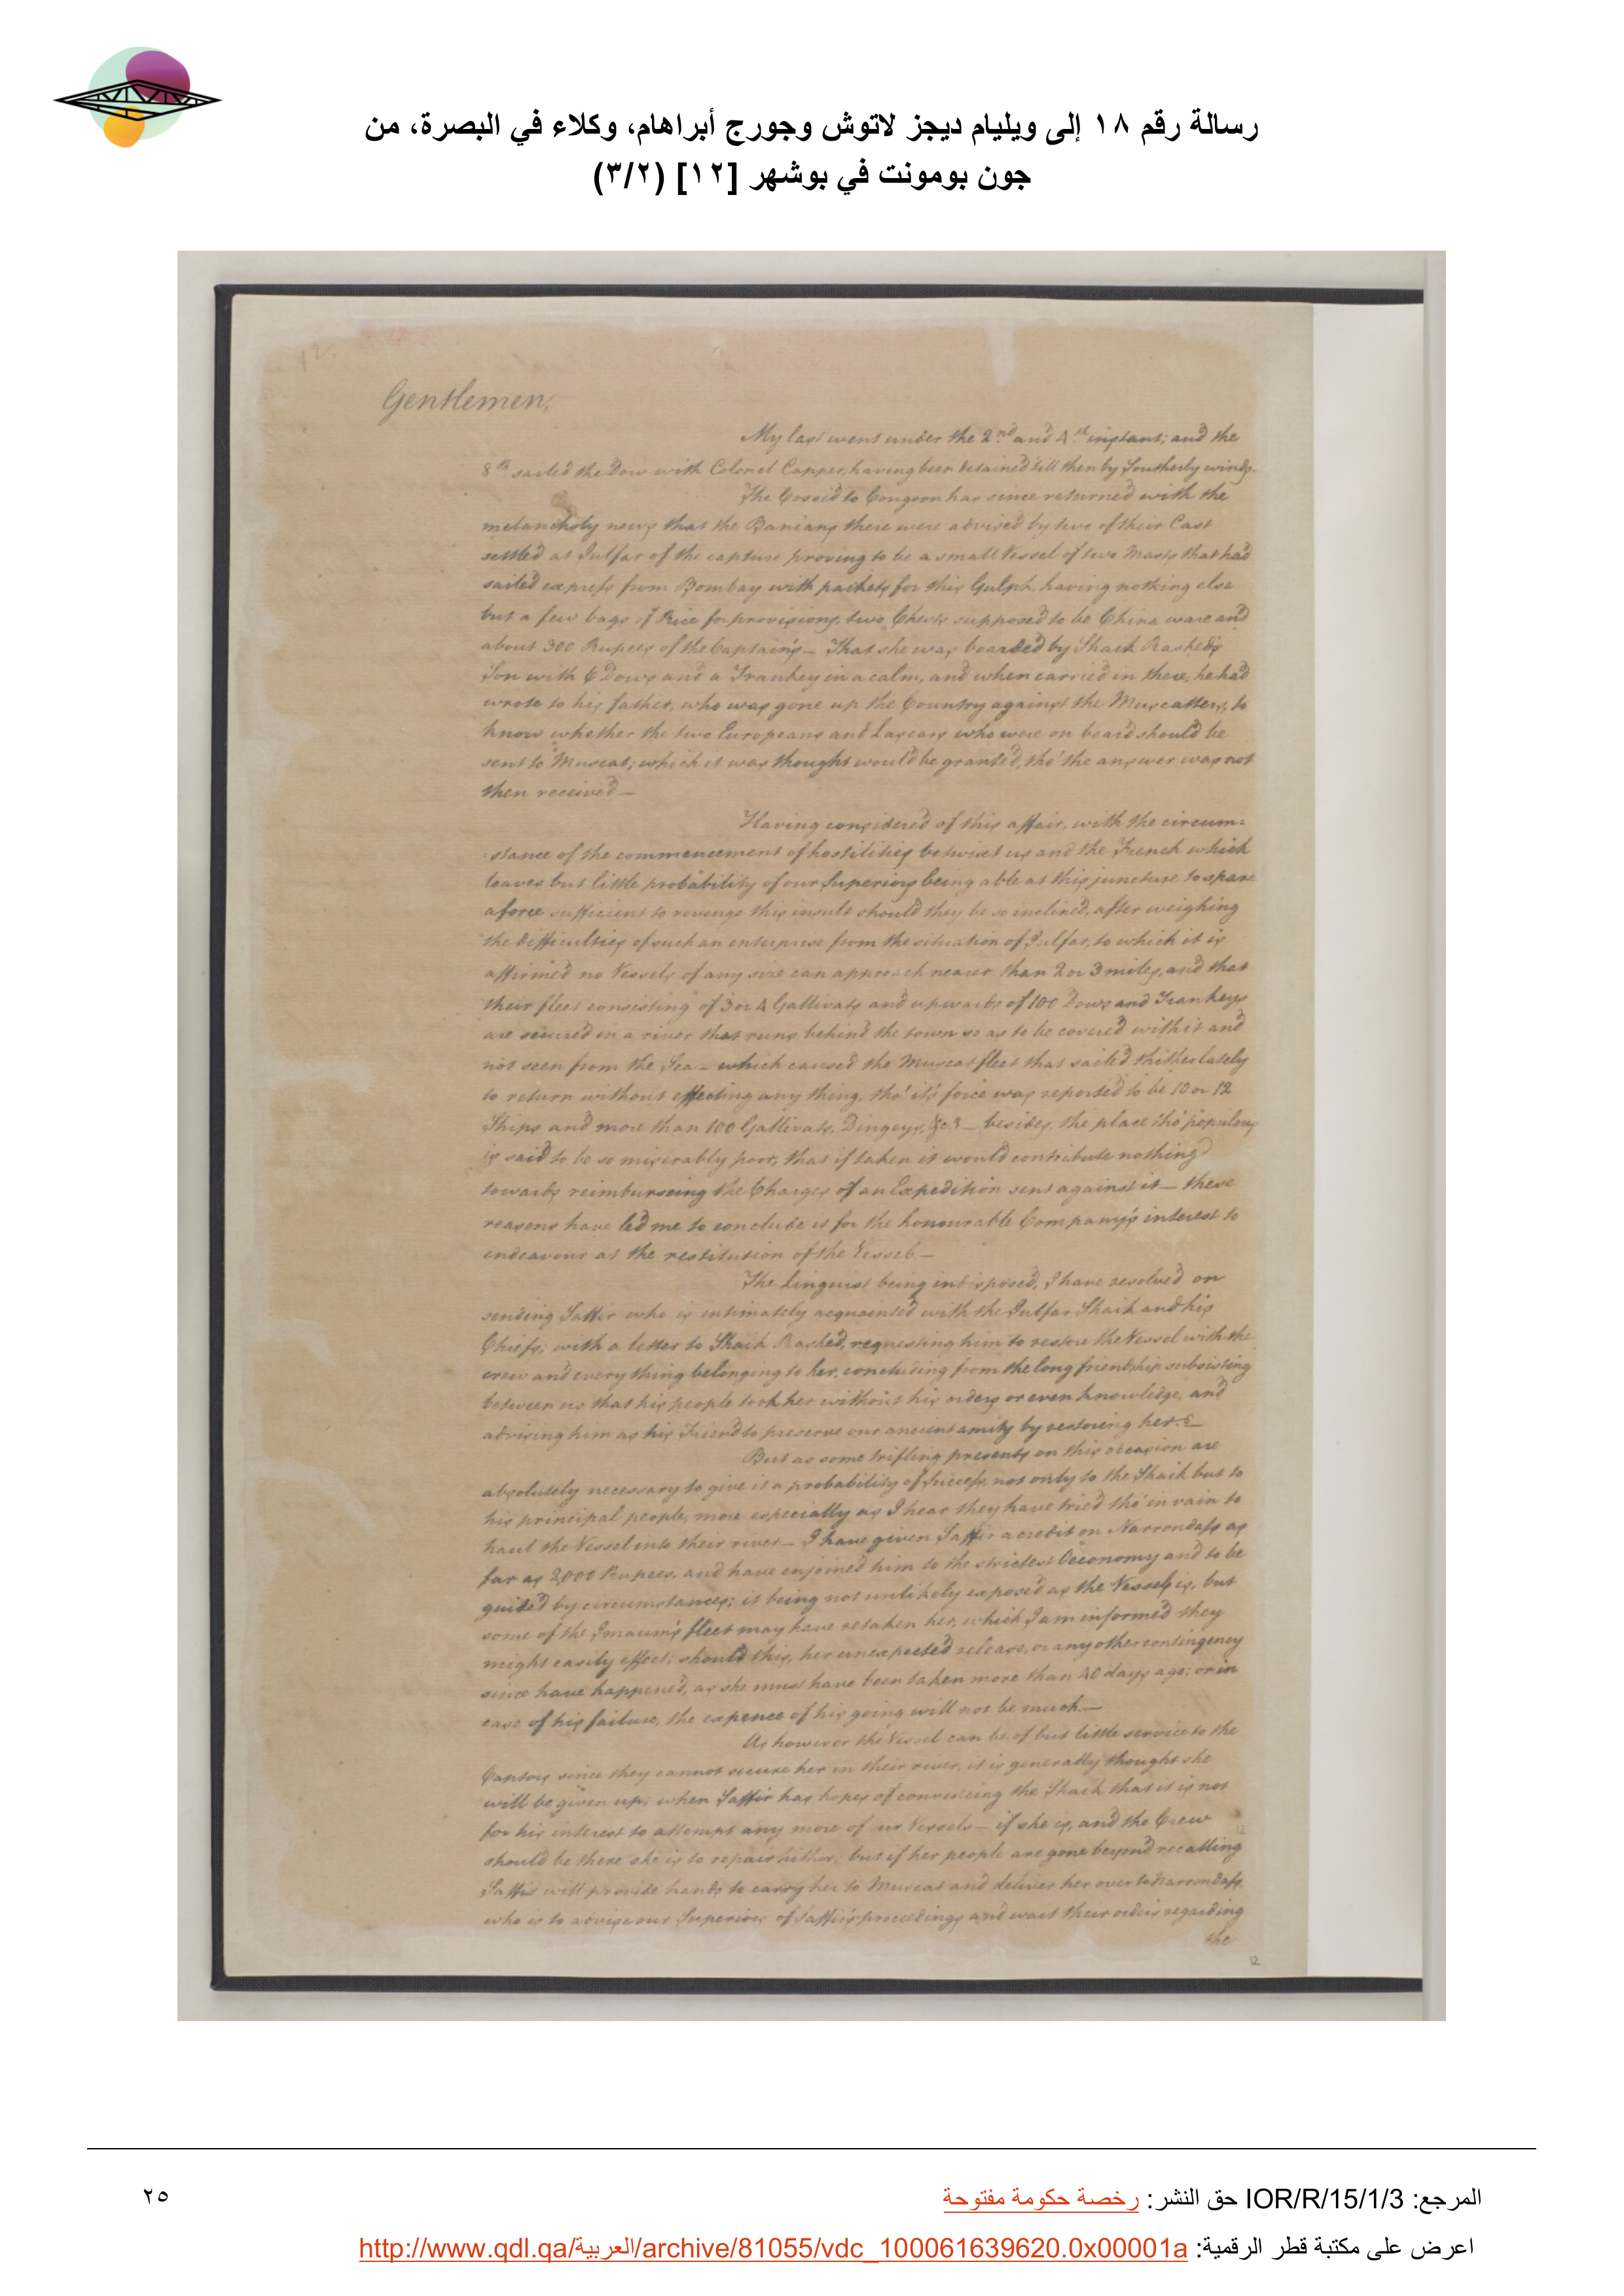 رسالة رقم ١٨ إلى ويليام ديجز لاتوش وجورج أبراهام، وكلاء في البصرة، من
جون بومونت في بوشهر [١٢] (٣/٢)
12.
Gentlemen,
My last went under the 2nd and 4th instant; and the
8th sailed the Dow with Colonel Capper, having been detained till then by Southerly winds.
The Cossid to Congoon has since returned with the
melancholy news that the Banians there were advised by two of their Cast
settled at Julfar of the capture proving to be a small Vessel of two Masts that had
sailed express from Bombay with packets for this Gulph, having nothing else
but a few bags of Rice for provisions, two Chests supposed to be China ware and
about 300 Rupees of the Captain's — That she was boarded by Shaik Rashed's
Son with 6 Dows and a Trankey in a calm, and when carried in there, he had
wrote to his father, who was gone up the Country against the Muscatters, to
know whether the two Europeans and Lascars who were on board should be
sent to Muscat; which it was thought would be granted, tho' the answer was not
then received —
Having considered of this affair, with the circum=
=stance of the commencement of hostilities betwixt us and the French which
leaves but little probability of our Superiors being able at this juncture to spare
a force sufficient to revenge this insult should they be so inclined, after weighing
the difficulties of such an enterprise from the situation of Julfar, to which it is
affirmed no Vessels of any size can approach nearer than 2 or 3 miles, and that
their fleet consisting of 3 or 4 Gallivats and upwards of 100 Dows and Trankeys
are secured in a river that runs behind the town so as to be covered with it and
not seen from the Sea — which caused the Muscat fleet that sailed thither lately
to return without effecting any thing, tho' it's force was reported to be 10 or 12
Ships and more than 100 Gallivats, Dingeys, &ca — besides, the place tho' populous
is said to be so miserably poor, that if taken it would contribute nothing
towards reimburseing the Charges of an Expedition sent against it — these
reasons have led me to conclude it for the honourable Company's interest to
endeavour at the restitution of the Vessel —
The Linguist being indisposed, I have resolved on
sending Saffir who is intimately acquainted with the Julfar Shaik and his
Chiefs; with a letter to Shaik Rashed, requesting him to restore the Vessel with the
crew and every thing belonging to her, concluding from the long friendship subsisting
between us that his people took her without his orders or even knowledge, and
advising him as his Friend to preserve our ancient amity by restoring her. —
But as some trifling presents on this occasion are
absolutely necessary to give it a probability of success, not only to the Shaik but to
his principal people, more especially as I hear they have tried tho' in vain to
haul the Vessel into their river — I have given Saffir a credit on Narrondass as
far as 2,000 Rupees, and have enjoined him to the strictest Oeconomy and to be
guided by circumstances; it being not unlikely exposed as the Vessel is, but
some of the Imaum's fleet may have retaken her, which I am informed they
might easily effect; should this, her unexpected release, or any other contingency
since have happened, as she must have been taken more than 40 days ago; or in
case of his failure, the expence of his going will not be much. —
As however the Vessel can be of but little service to the
Captors since they cannot secure her in their river, it is generally thought she
will be given up; when Saffir has hopes of convincing the Shaik that it is not
for his interest to attempt any more of our Vessels — if she is, and the Crew
should be there she is to repair hither; but if her people are gone beyond recalling
Saffir will provide hands to carry her to Muscat and deliver her over to Narrondass,
who is to advise our Superiors of Saffir's proceedings and wait their orders regarding
the
12
المرجع: IOR/R/15/1/3 حق النشر: رخصة حكومة مفتوحة
٢٥
اعرض على مكتبة قطر الرقمية: http://www.qdl.qa/العربية/archive/81055/vdc_100061639620.0x00001a